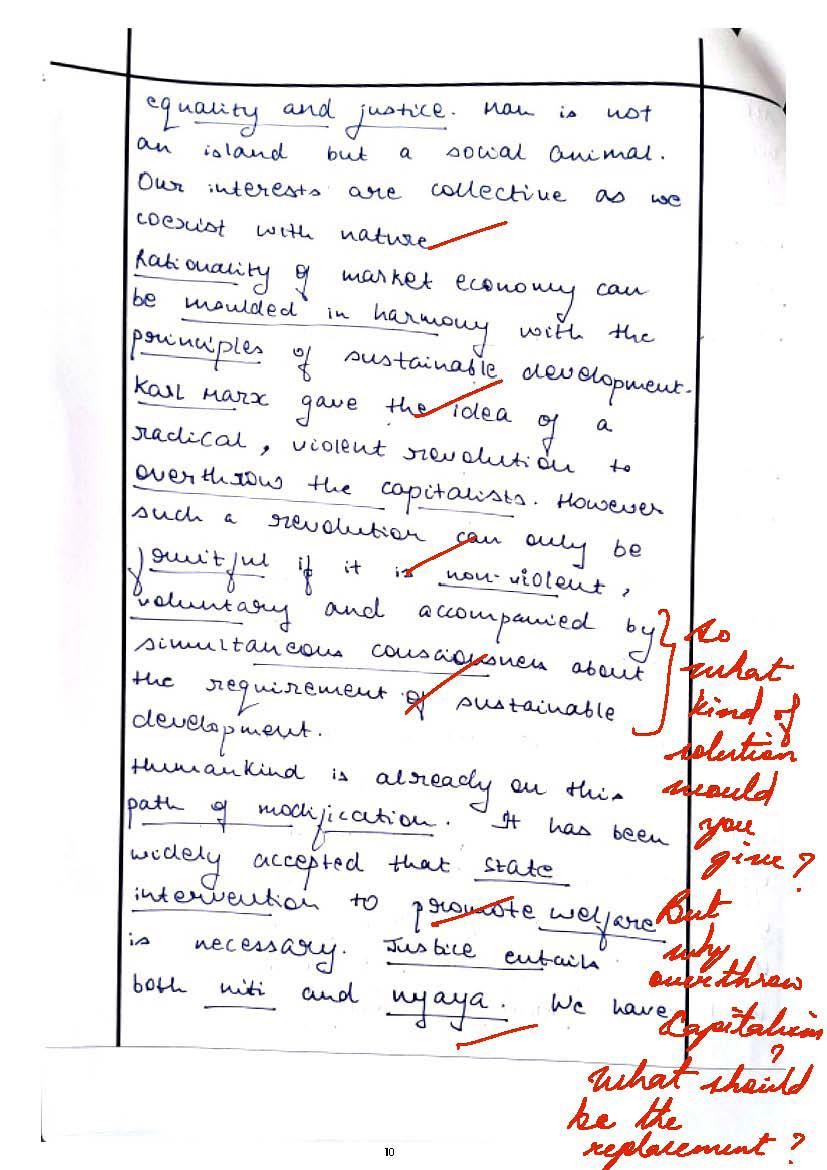 equality and justice. Man is not
an island but a social animal.
Our interests are collective as we
coexist with nature
Rationality of market economy can
be moulded in harmony with the
principles of sustainable development.
Karl Marx gave the idea of a
radical, violent revolution to
overthrow the capitalists. However
such a revolution can only be
fruitful if it is non-violent,
voluntary and accompanied by
simultaneous consciousness about
the requirement of sustainable
development.
Humankind is already on this
path of modification. It has been
widely accepted that state
intervention to promote welfare
is necessary. Justice entails
both niti and nyaya. We have
so
what
kind of
solution
would
you
give?
But
why
overthrow
Capitalism
?
What should
be the
replacement?
10